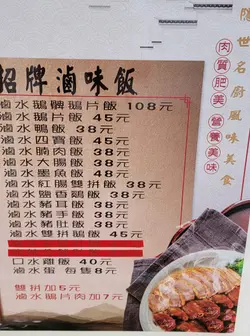 招牌滷味飯
滷水鵝髀鵝片飯 108元
滷水鵝片飯 45元
滷水鴨飯 38元
滷水四寶飯 45元
滷水腩肉飯 38元
滷水大腸飯 38元
滷水墨魚飯 48元
滷水紅腸雙拼飯 38元
滷水鹽香鷄飯 38元
滷水豬耳飯 38元
滷水豬手飯 38元
滷水豬肚飯 38元
滷水雙拼鵝飯 45元
口水雞飯 40元
滷水蛋 每隻8元
雙拼加5元
滷水鵝片肉加7元
隨世名廚風味美食
肉質肥美 營養美味